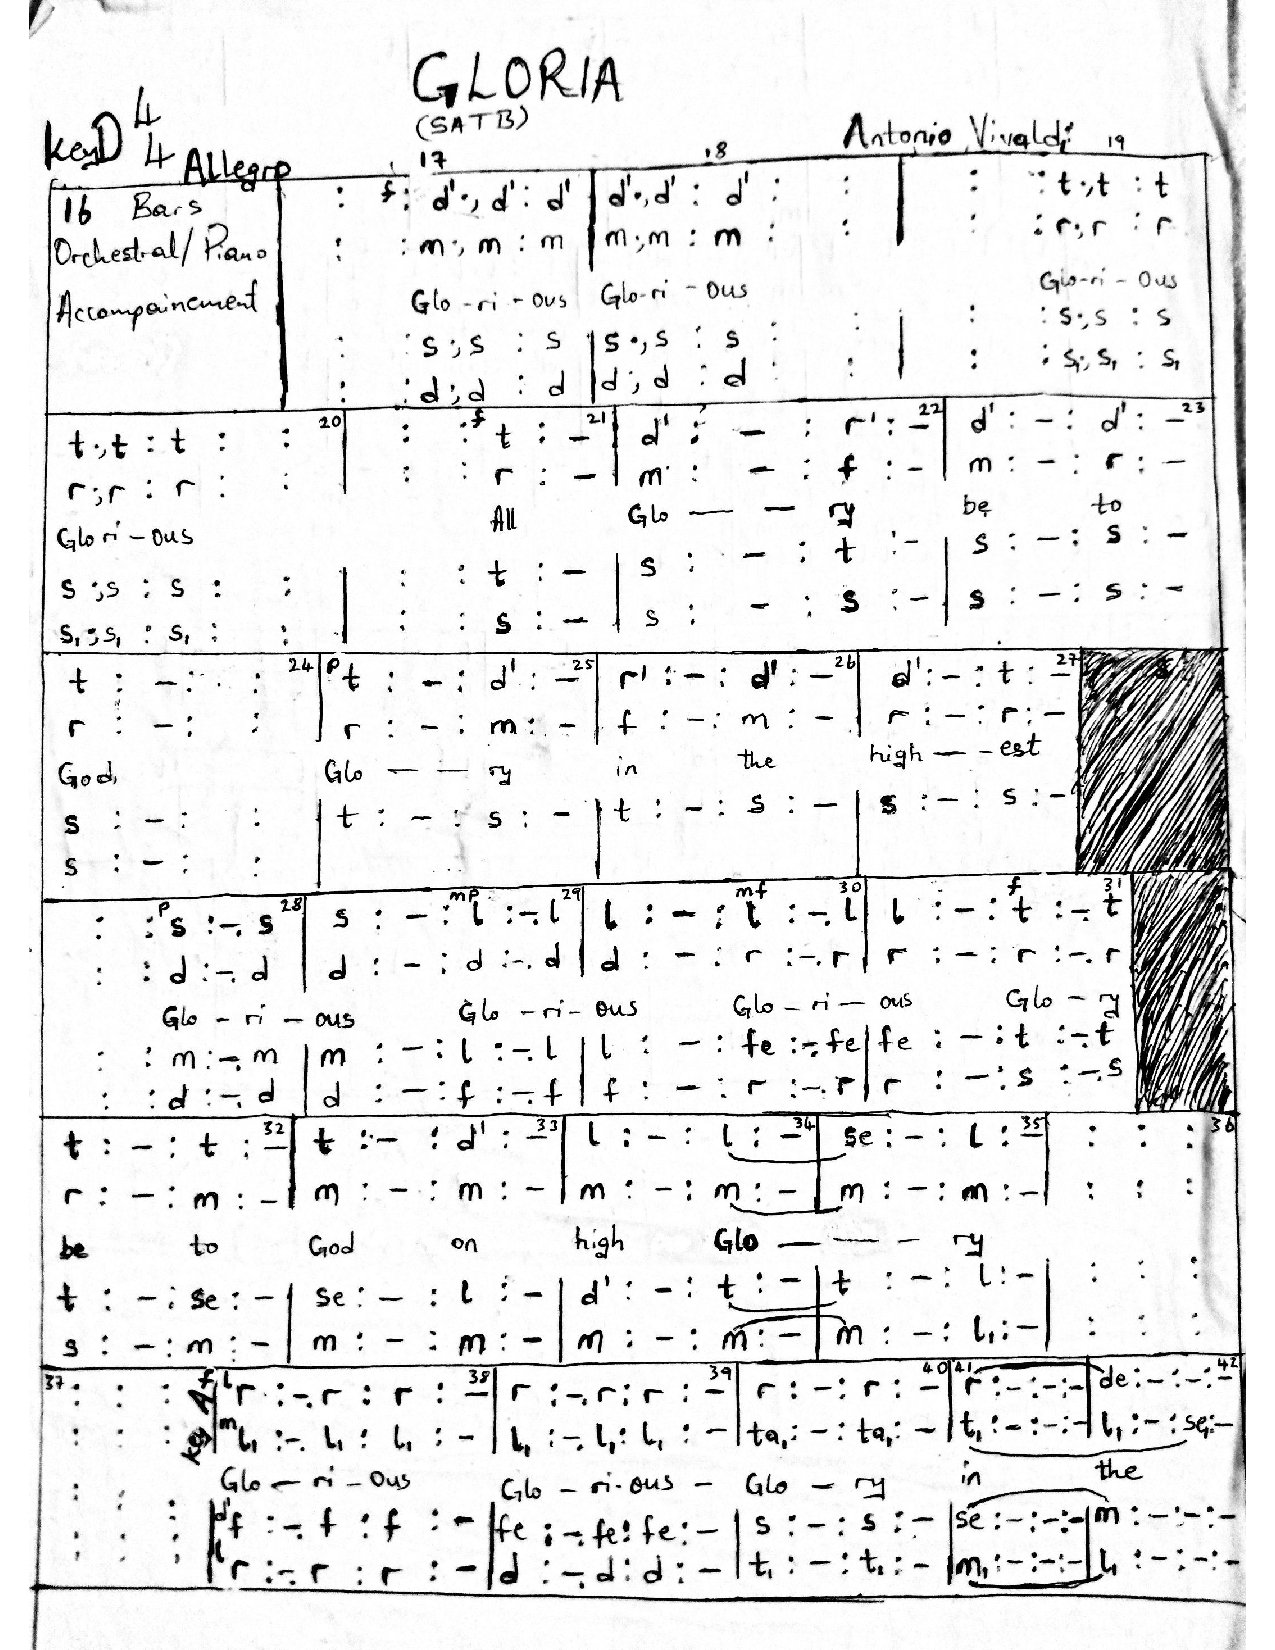 GLORIA
(SATB)
Key D 4/4 Allegro
Antonio Vivaldi
17 18 19
16 Bars
Orchestral/Piano
Accompainement
: f: d'.,d' : d' | d'.,d' : d' : : | : : t.,t : t
: : m.,m : m | m.,m : m : : | : : r.,r : r
Glo-ri-ous Glo-ri-ous Glo-ri-ous
: : s.,s : s | s.,s : s : : | : : s.,s : s
: : d.,d : d | d.,d : d : : | : : s₁.,s₁ : s₁
20 21 22 23
t.,t : t : : | : : f t : - | d' : - : r' : - | d' : - : d' : -
r.,r : r : : | : : r : - | m : - : f : - | m : - : r : -
Glori-ous All Glo — — ry be to
s.,s : s : : | : : t : - | s : - : t : - | s : - : s : -
s₁.,s₁ : s₁ : : | : : s : - | s : - : s : - | s : - : s : -
24 25 26 27
t : - : : | p t : - : d' : - | r' : - : d' : - | d' : - : t : -
r : - : : | r : - : m : - | f : - : m : - | r : - : r : -
God, Glo — — ry in the high — - est
s : - : : | t : - : s : - | t : - : s : - | s : - : s : -
s : - : :
28 29 30 31
: : p s : -. s | s : - : mp l : -. l | l : - : mf t : -. l | l : - : f t : -. t
: : d : -. d | d : - : d : -. d | d : - : r : -. r | r : - : r : -. r
Glo - ri - ous Glo - ri - ous Glo - ri - ous Glo - ry
: : m : -. m | m : - : l : -. l | l : - : fe : -. fe | fe : - : t : -. t
: : d : -. d | d : - : f : -. f | f : - : r : -. r | r : - : s : -. s
32 33 34 35 36
t : - : t : - | t : - : d' : - | l : - : l : - | se : - : l : - | : : :
r : - : m : - | m : - : m : - | m : - : m : - | m : - : m : - | : : :
be to God on high Glo — — - ry
t : - : se : - | se : - : l : - | d' : - : t : - | t : - : l : - | : : :
s : - : m : - | m : - : m : - | m : - : m : - | m : - : l₁ : - | : : :
37 38 39 40 41 42
: : : key A f | l r : -. r : r : - | r : -. r : r : - | r : - : r : - | r : - : - : - | de : - : - : -
: : : | m l₁ : -. l₁ : l₁ : - | l₁ : -. l₁ : l₁ : - | ta₁ : - : ta₁ : - | t₁ : - : - : - | l₁ : - : se₁ : -
Glo - ri - ous Glo - ri-ous - Glo - ry in the
: : : | d' f : -. f : f : - | fe : -. fe : fe : - | s : - : s : - | se : - : - : - | m : - : - : -
: : : | l r : -. r : r : - | d : -. d : d : - | t₁ : - : t₁ : - | m₁ : - : - : - | l₁ : - : - : -